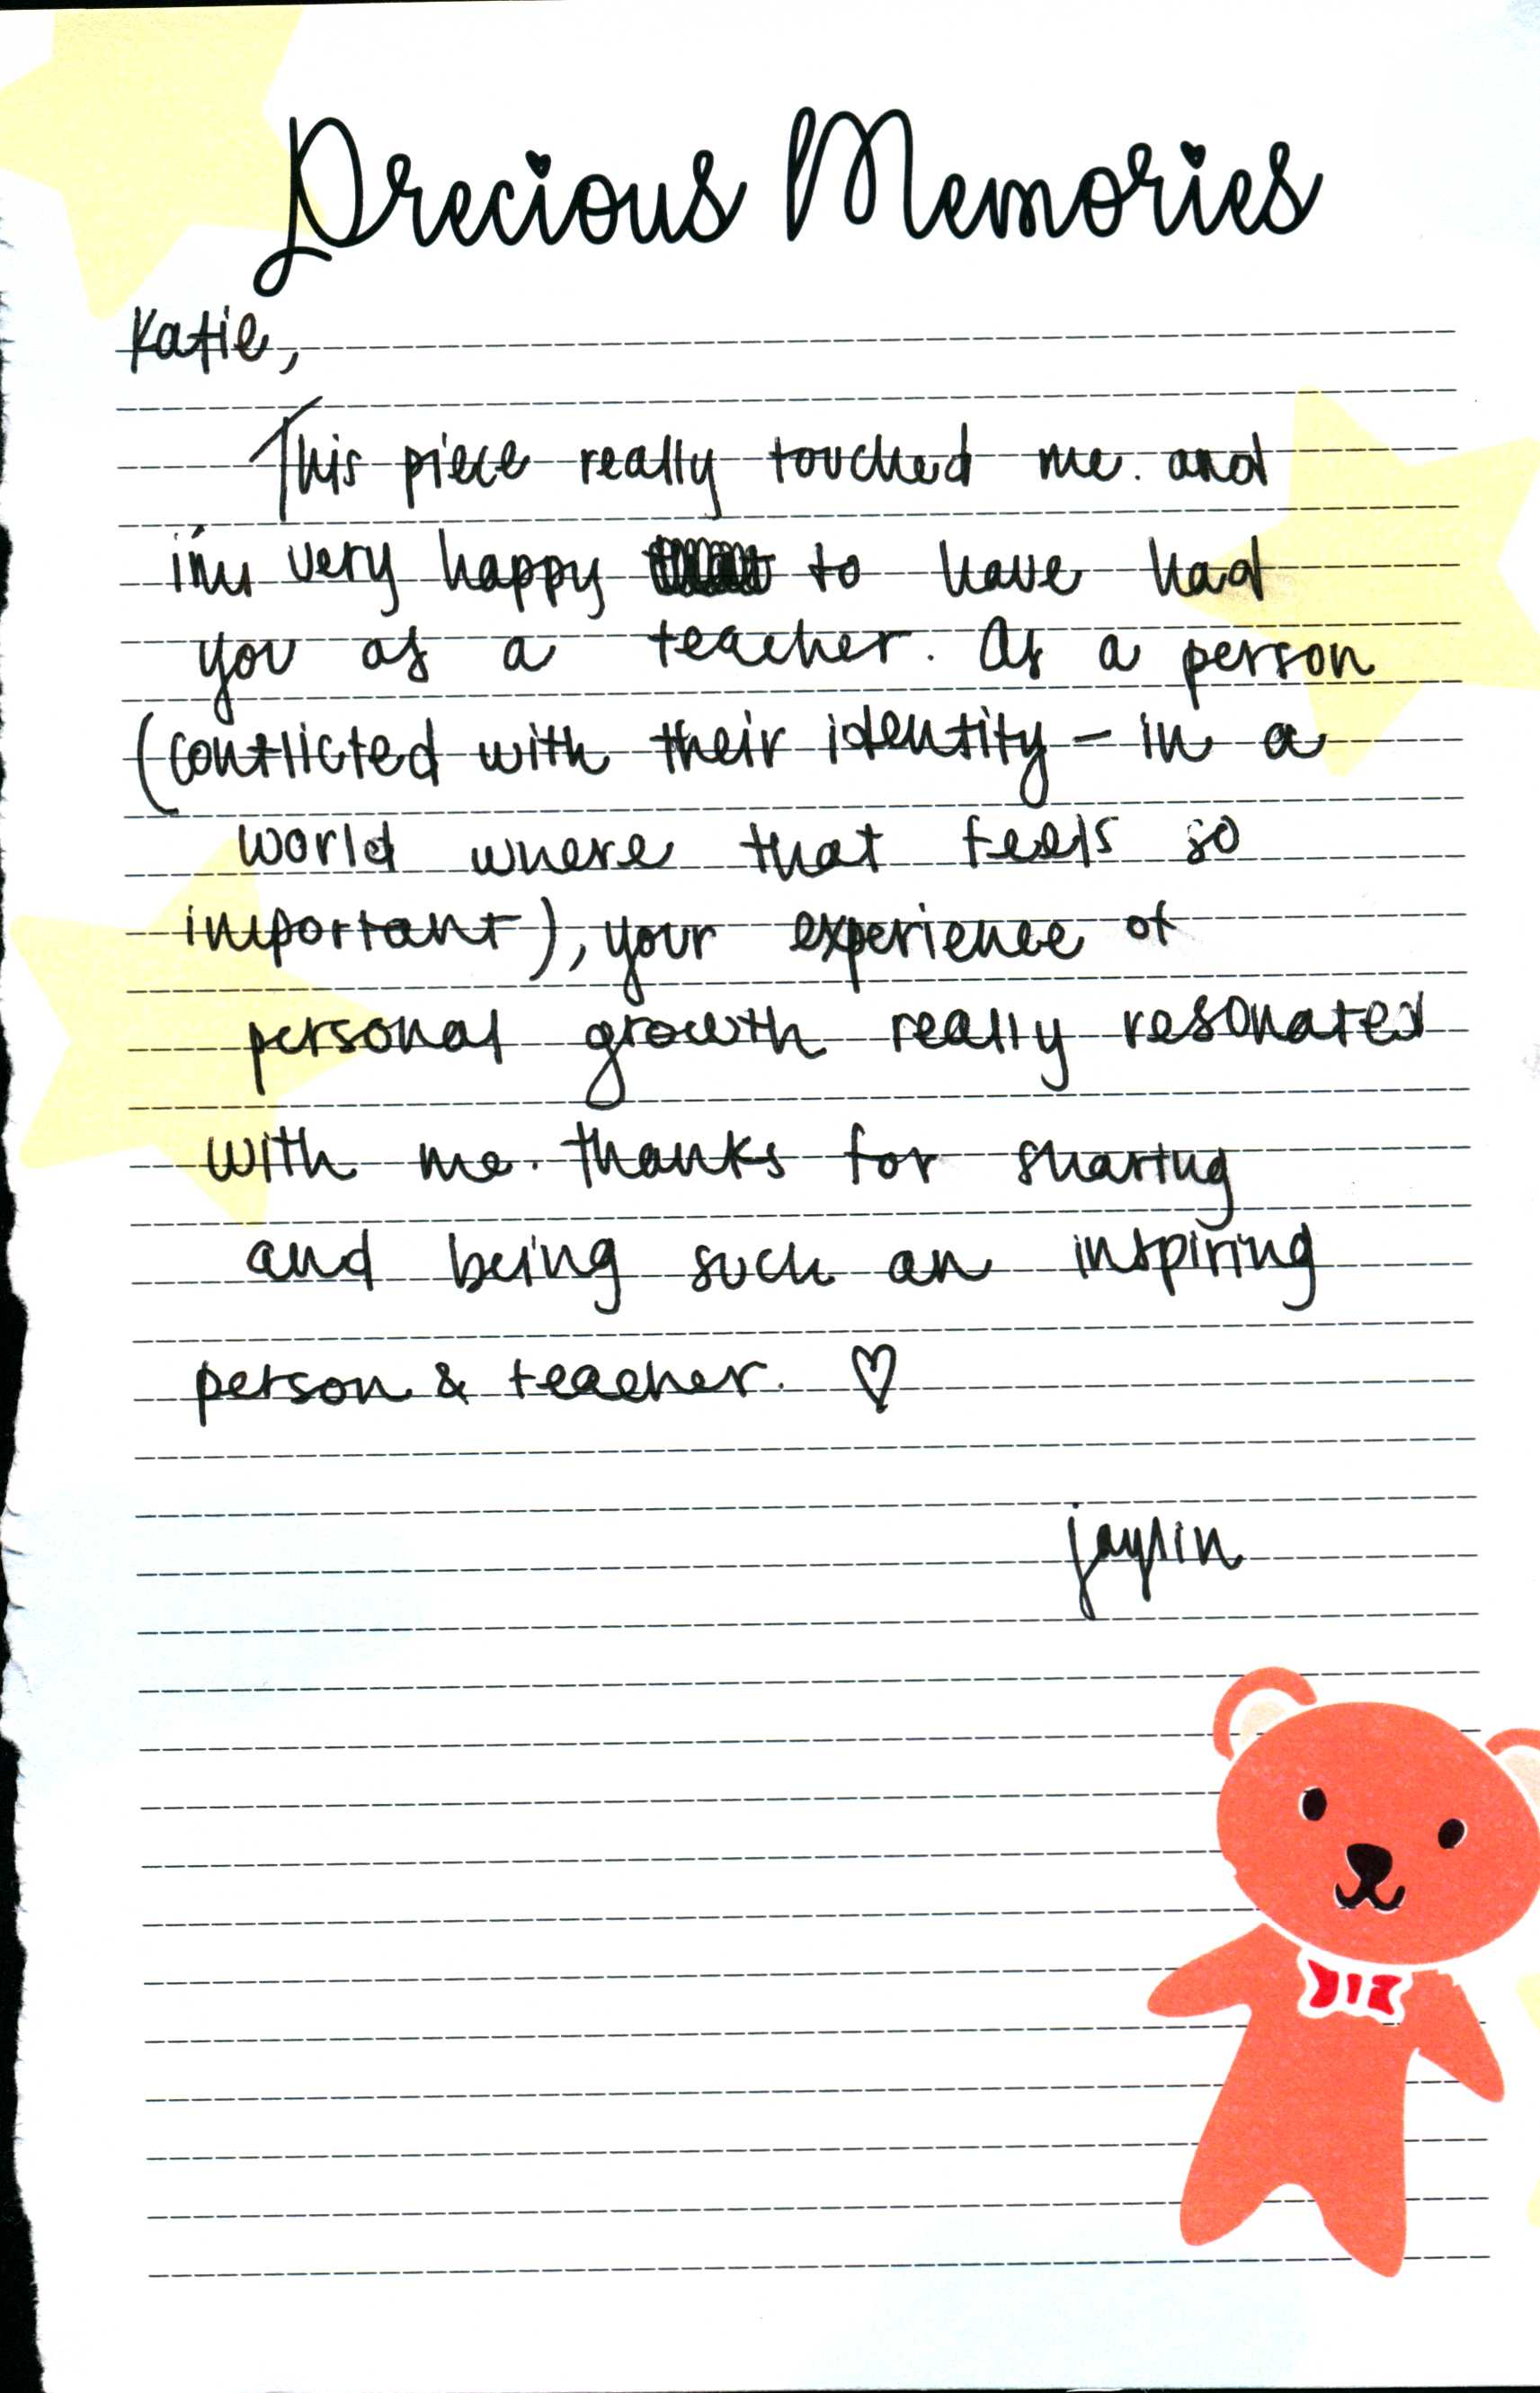 Precious Memories
Katie,
This piece really touched me. and
i'm very happy to have had
you as a teacher. As a person
(conflicted with their identity - in a
world where that feels so
important), your experience of
personal growth really resonated
with me. thanks for sharing
and being such an inspiring
person & teacher. ♡
jaylin